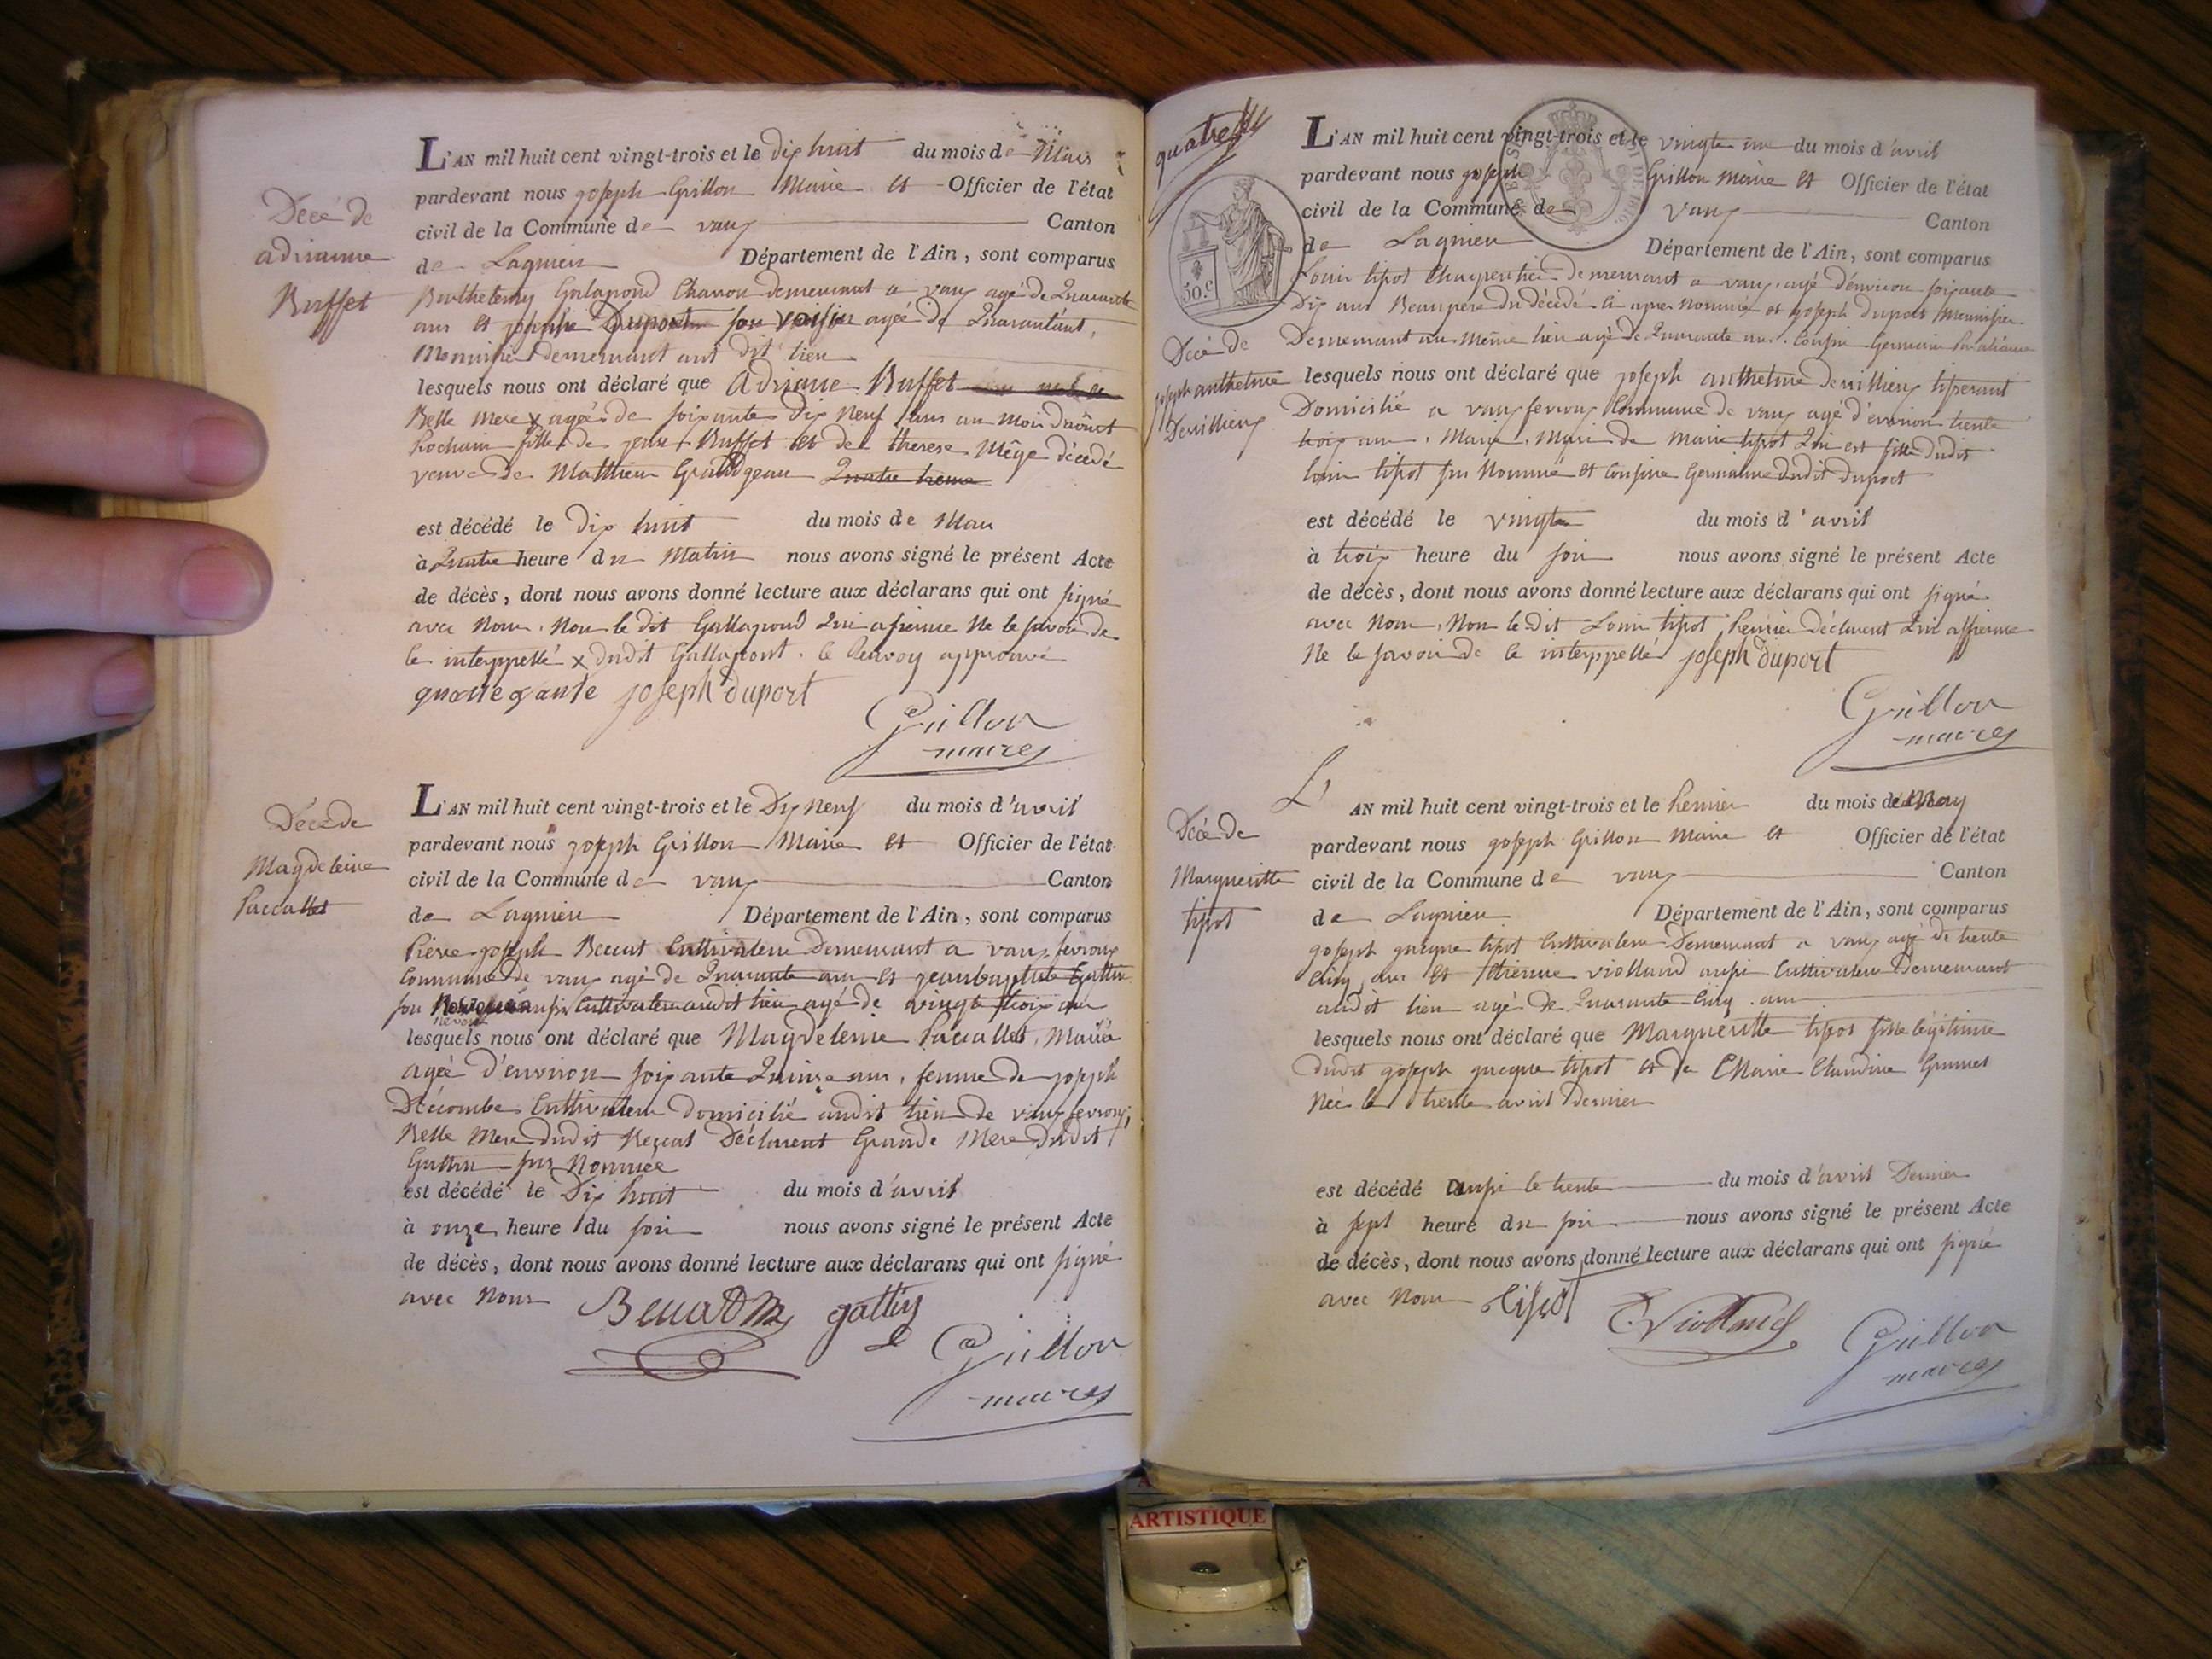 Décé de
adrianne
Buffet
L'AN mil huit cent vingt-trois et le dix huit du mois de Mars
pardevant nous joseph Grillon Maire et Officier de l'état
civil de la Commune de vaux Canton
de Lagnieu Département de l'Ain, sont comparus
Barthelemy Galapond Charon demeurant a vaux agé de Quarante
ans et joseph Duport son voisin agée de Quarantans,
Menuisier demeurant aut dit lieu
lesquels nous ont déclaré que Adriane Buffet
Belle mere x agée de soixante Dix Neuf ans au Mois D'aôust
Prochain fille de jean Buffet et de therese Mêge décédé
veuve de Matthieu Quatre heure
est décédé le dix huit du mois de Mars
à Quatre heure du Matin nous avons signé le présent Acte
de décès, dont nous avons donné lecture aux déclarans qui ont signé
avec Nous, Non le dit Gallapond Qui afirme Ne le savoir de
ce interppellé x dudit Gallapont. le Renvoy approuvé
joseph duport
Grillon
maire
Décé de
Magdeleine
Paccallet
L'AN mil huit cent vingt-trois et le Dix Neuf du mois d'avril
pardevant nous joseph Grillon Maire et Officier de l'état
civil de la Commune de vaux Canton
de Lagnieu Département de l'Ain, sont comparus
Piérre joseph Beccat Cultivateur Demeurant a vaux fevroux
Commune de vaux agé de Quarante ans et jeanbaptiste Guttin
son aussi Cultivateur audit lieu agé de vingt trois ans
neveu
lesquels nous ont déclaré que Magdeleine Paccallet, Mariée
agée d'environ soixante Quinze ans, femme de joseph
Décombe Cultivateur Domicilié audit lieu de vaux fevroux,
Belle Mere dudit Beccat Déclarent Grande Mere dudit
Guttin sus Nommée
est décédé le Dix huit du mois d'avril
à onze heure du soir nous avons signé le présent Acte
de décès, dont nous avons donné lecture aux déclarans qui ont signé
avec Nous
gattin
Grillon
maire
quatre
50.c
L'AN mil huit cent vingt-trois et le vingt un du mois d'avril
pardevant nous joseph Grillon Maire et Officier de l'état
civil de la Commune de vaux Canton
de Lagnieu Département de l'Ain, sont comparus
Louis tipot Charpentier demeurant a vaux, agé d'environ soixante
Dix ans Beaupere du décédé ci apres nommé et joseph duport Menuisier
Demeurant au même lieu agé de Quarante ans. Cousin Germain Par aliance
Décé de
joseph anthelme
Devillieux
lesquels nous ont déclaré que joseph anthelme devillieux tisserant
Domicilié a vaux fevroux Commune de vaux agé d'environ trente
trois ans, Marié, Mari de Marie tipot Qui est fille dudit
louis tipot sus Nommé et Cousine Germainne dudit Duport
est décédé le vingt du mois d'avril
à trois heure du soir nous avons signé le présent Acte
de décès, dont nous avons donné lecture aux déclarans qui ont signé
avec Nous, Non le Dit Louis tipot Premier déclarent Qui affirme
Ne le savoir de ce interppellé joseph duport
Grillon
maire
Décé de
Margueritte
tipot
L'AN mil huit cent vingt-trois et le Premier du mois de May
pardevant nous joseph Grillon Maire et Officier de l'état
civil de la Commune de vaux Canton
de Lagnieu Département de l'Ain, sont comparus
joseph jacque tipot Cultivateur Demeurant a vaux agé de trente
Cinq ans et Etienne violland aussi Cultivateur Demeurant
audit lieu agé de Quarante Cinq ans
lesquels nous ont déclaré que Margueritte tipot fille légitime
dudit joseph jacque tipot et de Marie Claudine Grumet
Née le trente avril Dernier
est décédé aussi le trente du mois d'avril Dernier
à sept heure du soir nous avons signé le présent Acte
de décès, dont nous avons donné lecture aux déclarans qui ont signé
avec Nous tipot
E. Violland
Grillon
maire
ARTISTIQUE